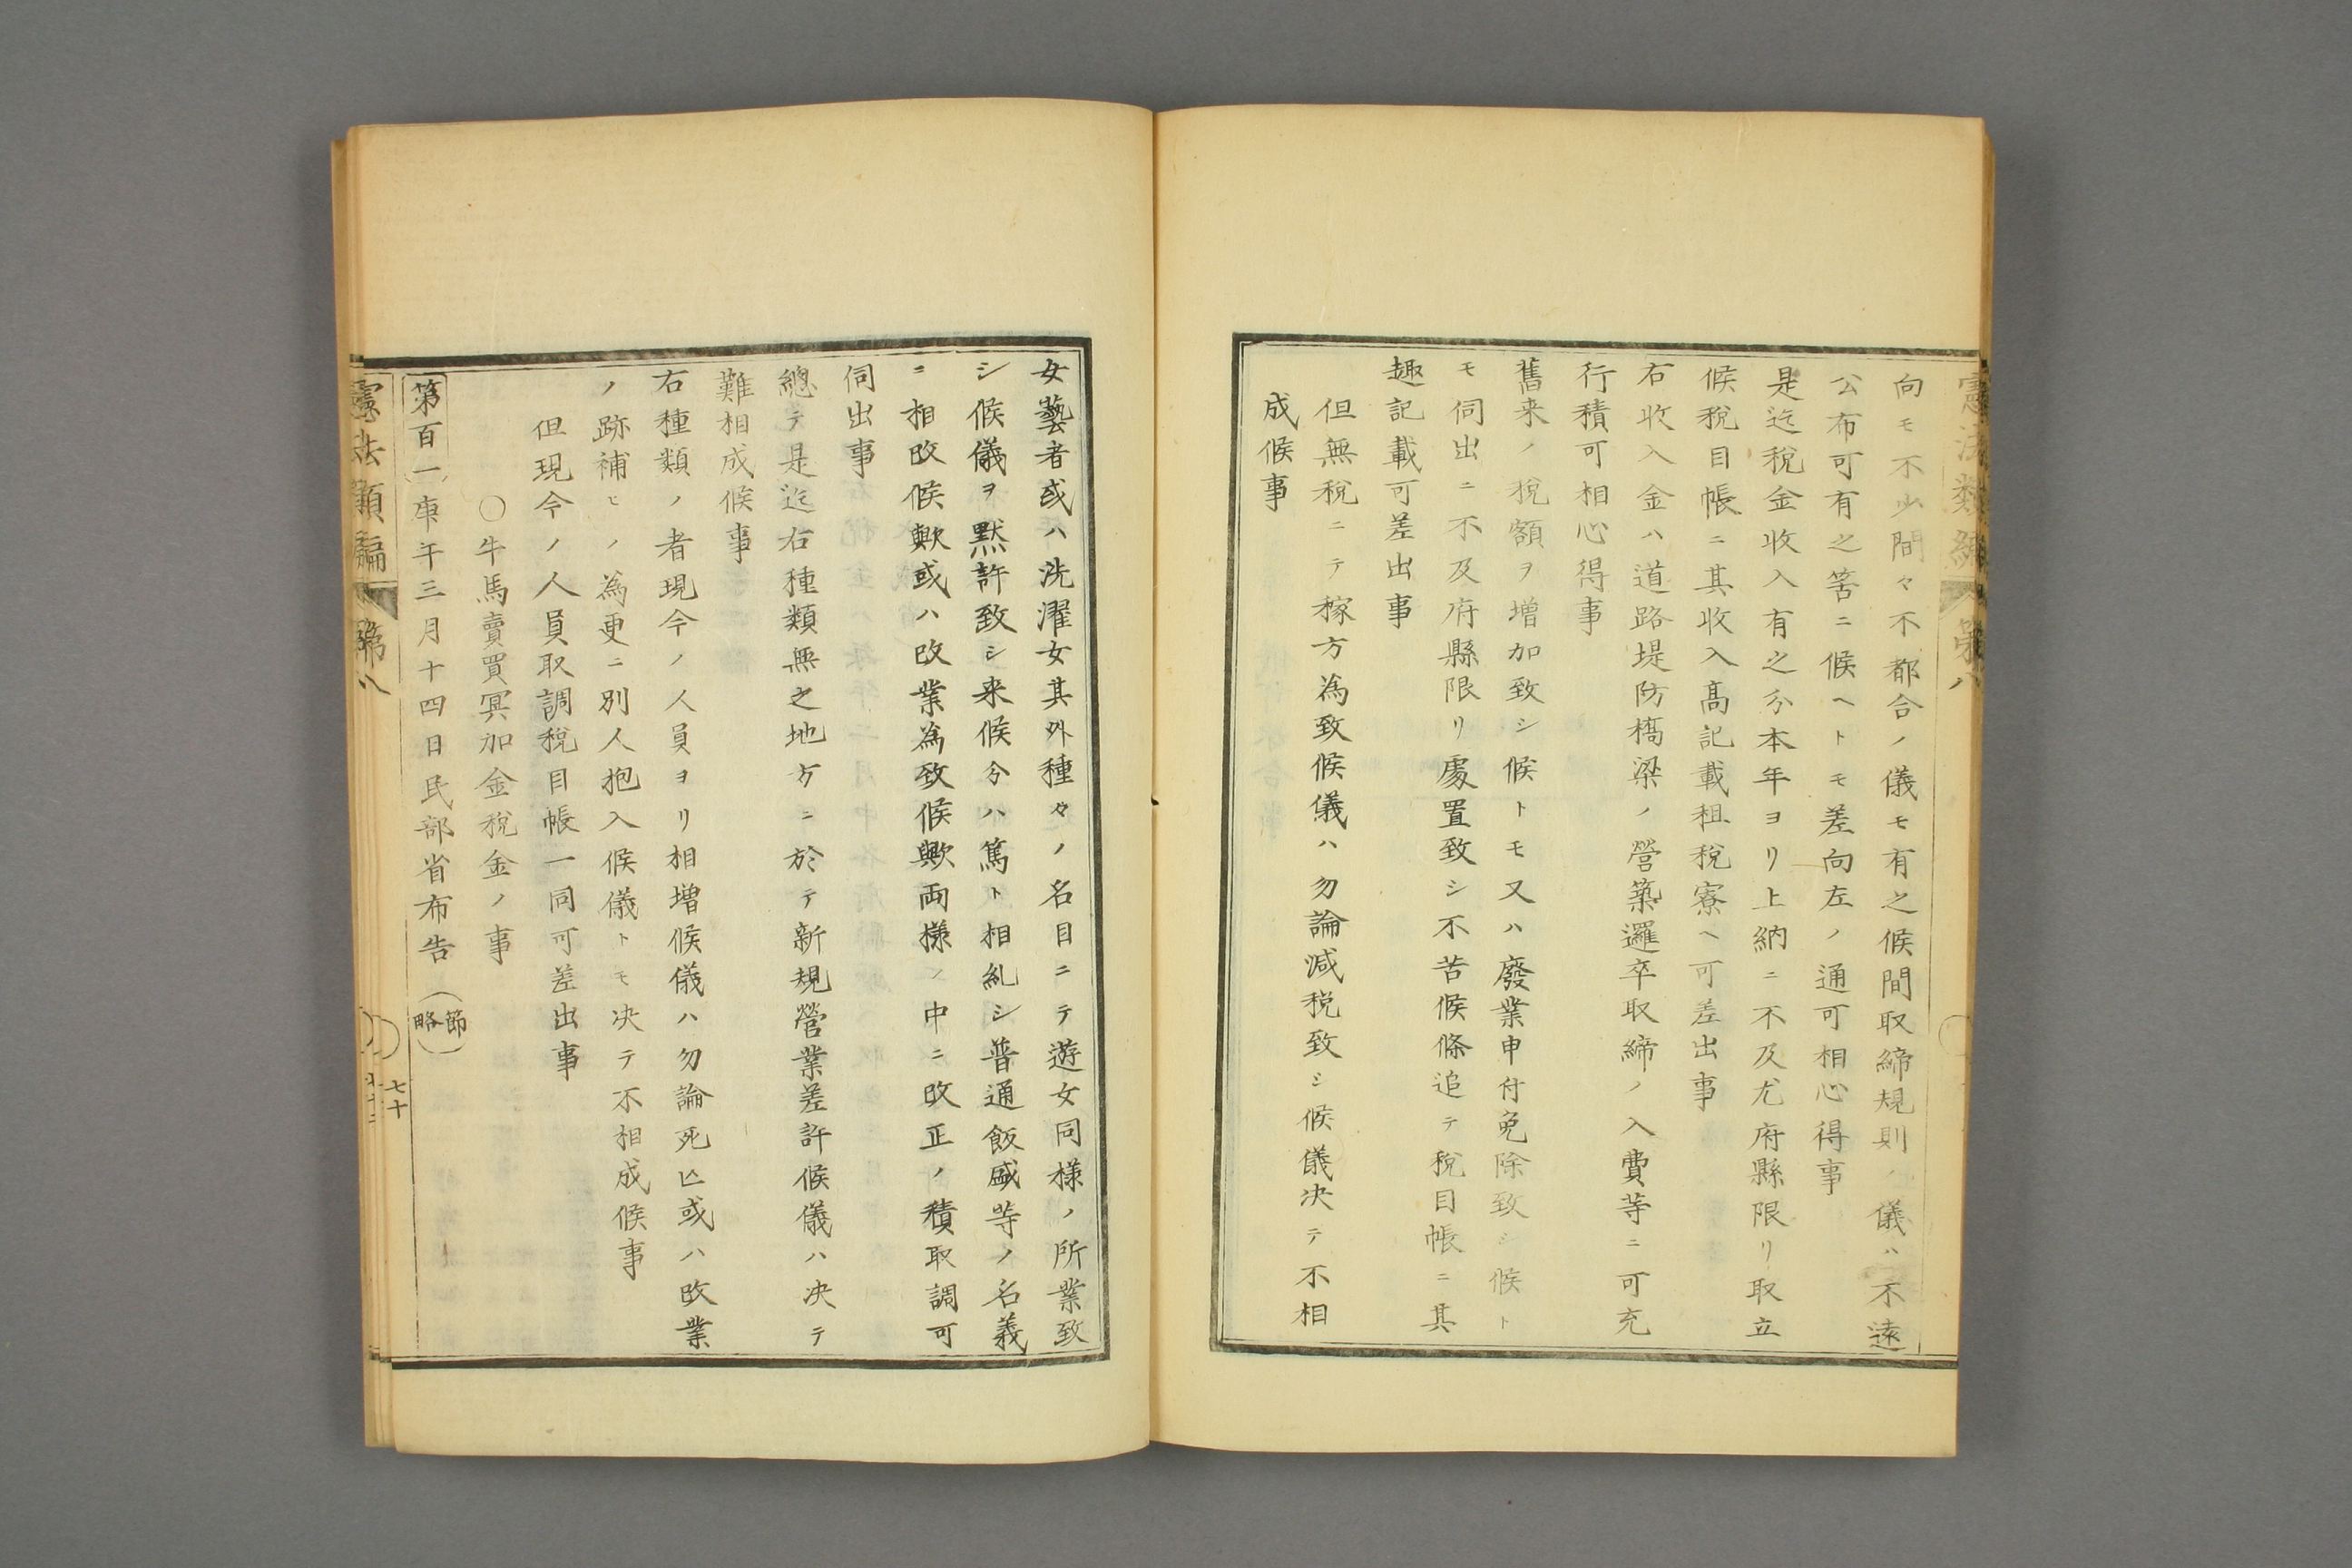 憲法類編 第八
向モ不少間々不都合ノ儀モ有之候間取締規則ノ儀ハ不遠
公布可有之筈ニ候ヘトモ差向左ノ通可相心得事
是迄税金收入有之分本年ヨリ上納ニ不及尤府縣限リ取立
候税目帳ニ其收入高記載租税寮ヘ可差出事
右收入金ハ道路堤防橋梁ノ營築邏卒取締ノ入費等ニ可充
行積可相心得事
舊来ノ税額ヲ増加致シ候トモ又ハ廢業申付免除致シ候ト
モ伺出ニ不及府縣限リ處置致シ不苦候條追テ税目帳ニ其
趣記載可差出事
但無税ニテ稼方為致候儀ハ勿論減税致シ候儀决テ不相
成候事
女藝者或ハ洗濯女其外種々ノ名目ニテ遊女同様ノ所業致
シ候儀ヲ默許致シ来候分ハ篤ト相糺シ普通飯盛等ノ名義
ニ相改候歟或ハ改業為致候歟両様ノ中ニ改正ノ積取調可
伺出事
總テ是迄右種類無之地方ニ於テ新規營業差許候儀ハ决テ
難相成候事
右種類ノ者現今ノ人員ヨリ相増候儀ハ勿論死亡或ハ改業
ノ跡補ヒノ為更ニ別人抱入候儀トモ决テ不相成候事
但現今ノ人員取調税目帳一同可差出事
〇牛馬賣買冥加金税金ノ事
第百一庚午三月十四日民部省布告(節略)
憲法類編 第八
七十